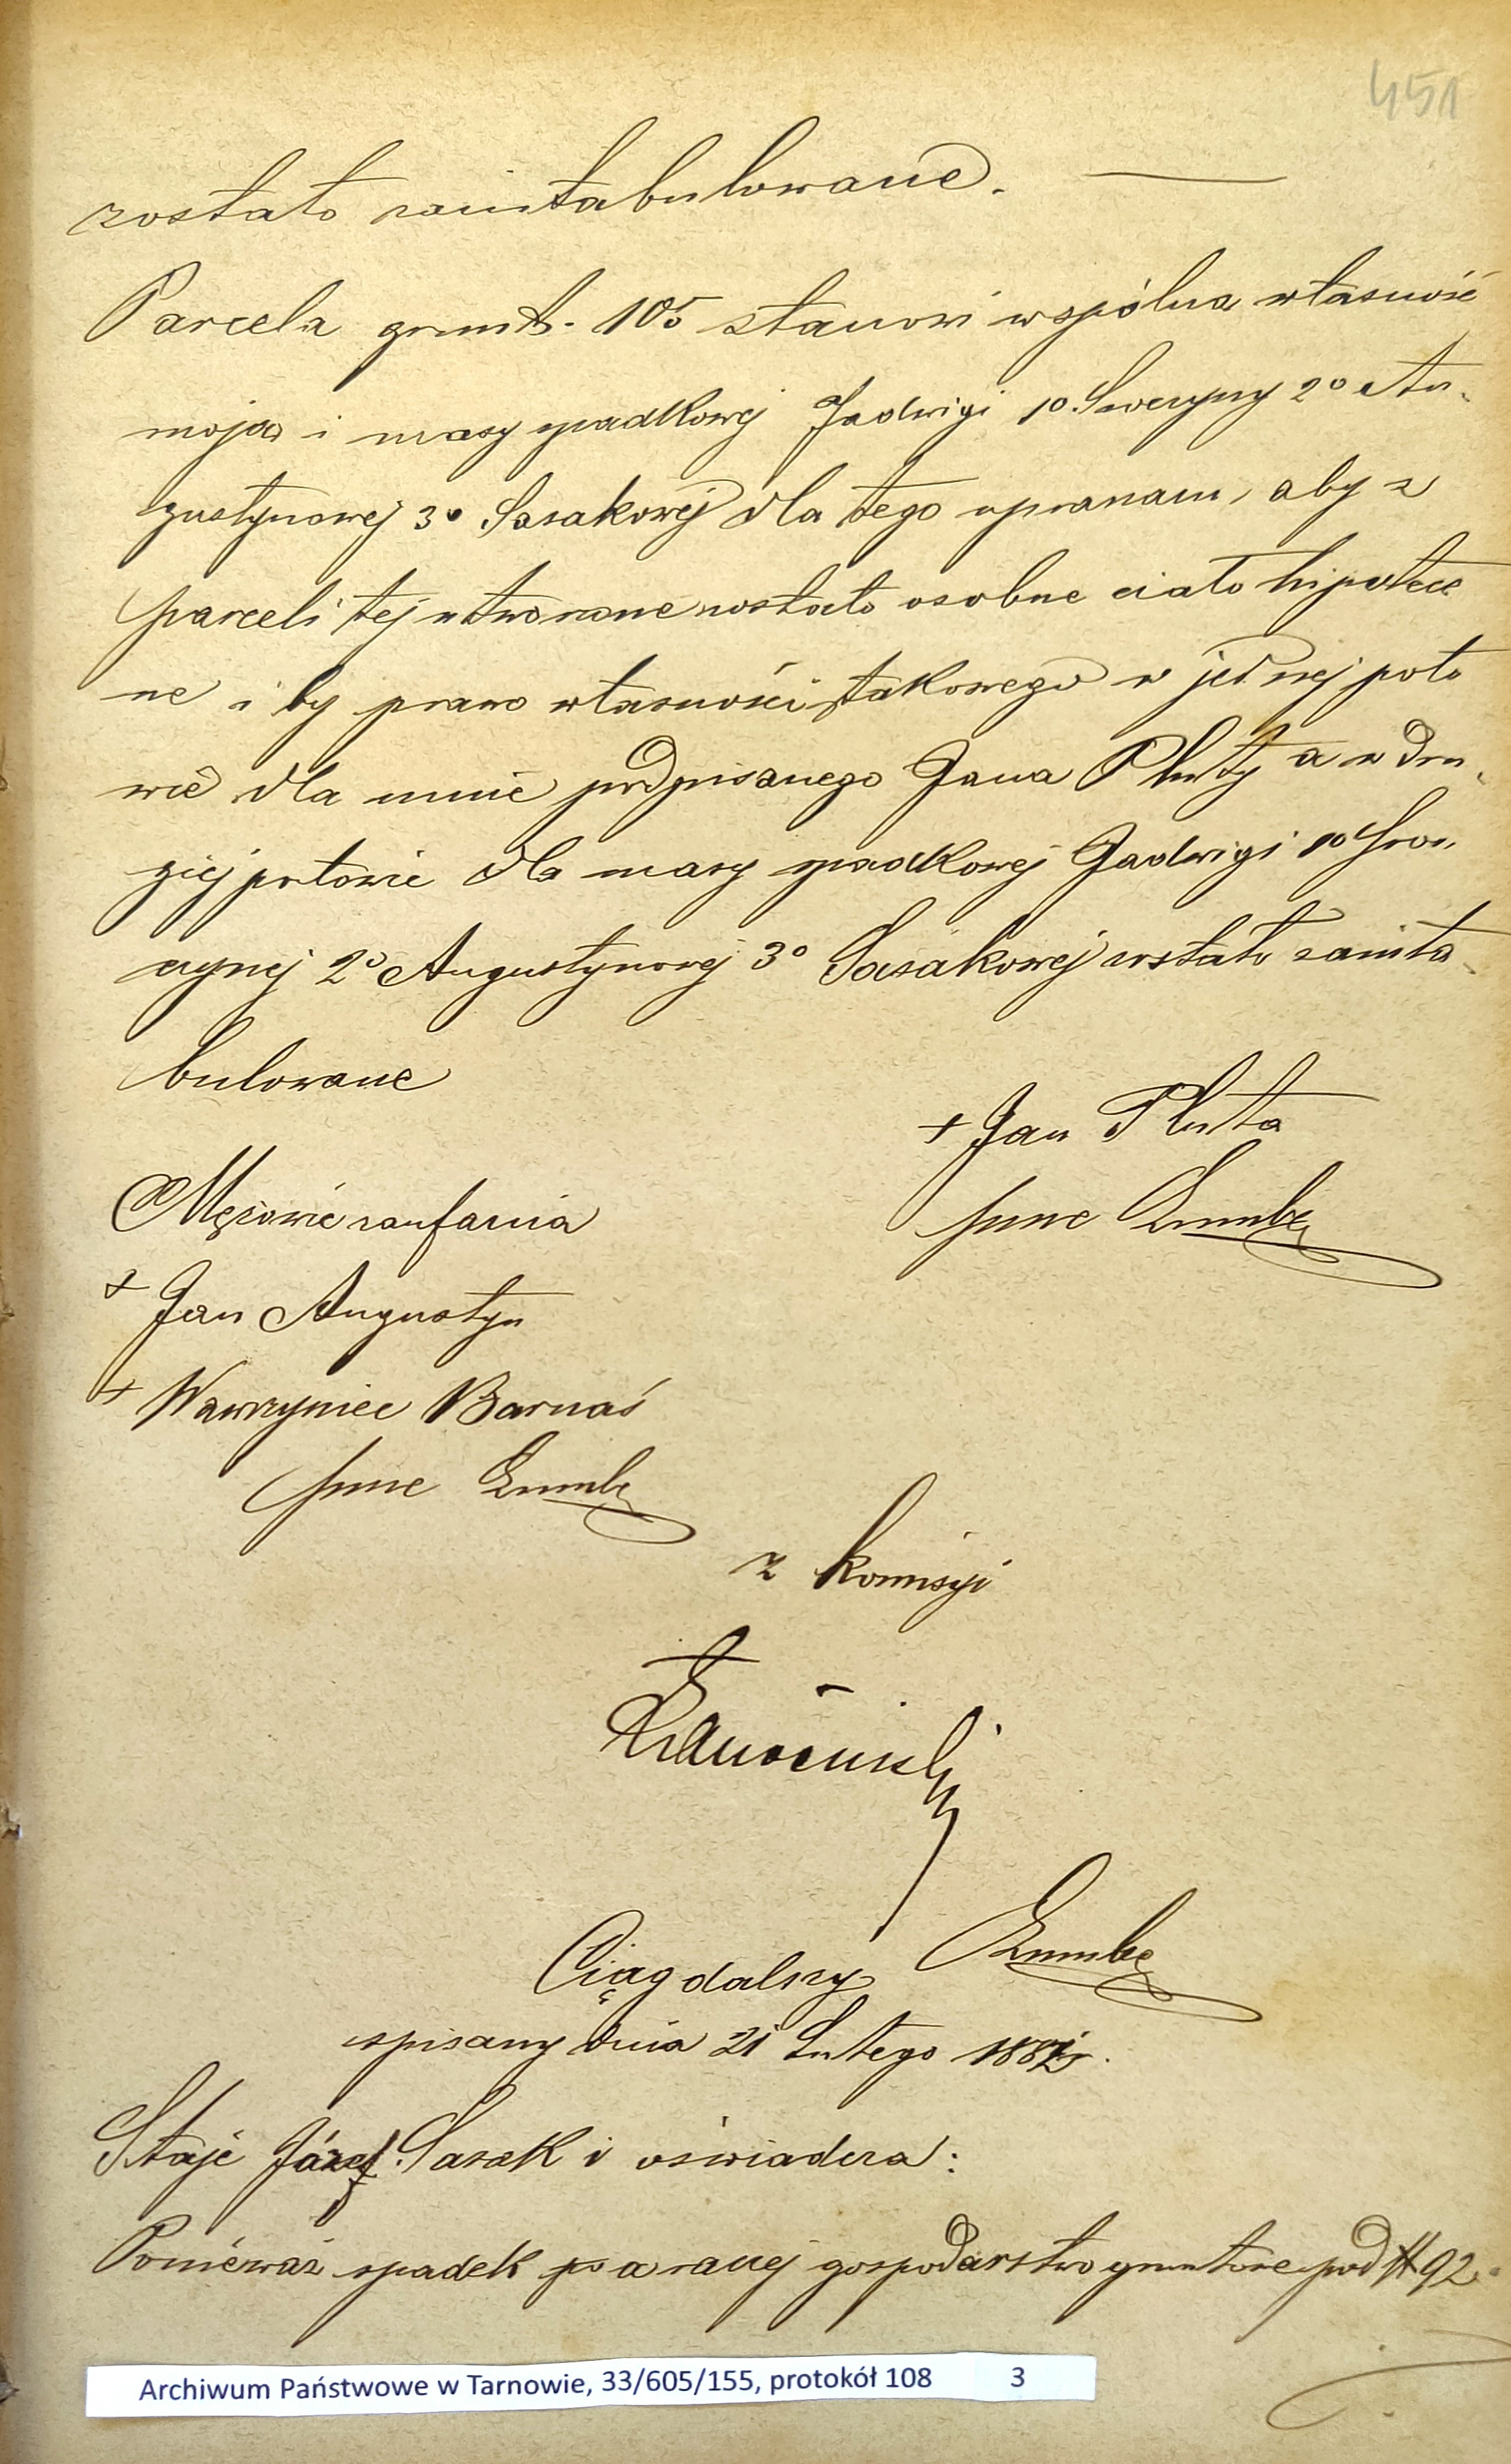 451
zostało zaintabulowane. —
Parcela grunt. 105 stanowi wspólną własność
moją i masy spadkowej Jadwigi 1º Sweryny 2º Au-
gustynowej 3º Sasakowej dla tego upraszam, aby z
parceli tej utworzone zostało osobne ciało hipotecz
ne i by prawo własności takowego w jednej poło
wie dla mnie podpisanego Jana Pluty a w dru-
giej połowie dla masy spadkowej Jadwigi 1º
2º Augustynowej 3º Sasakowej zostało zainta-
bulowane
+ Jan Pluta
Mężowie zaufania
+ Jan Augustyn
+ Wawrzyniec Barnaś
z komisyi
Ciąg dalszy
spisany dnia 21 Lutego 188
Staje Józef Sasak i oświadcza:
Ponieważ spadek po gospodarstwo gruntowe pod N 92
Archiwum Państwowe w Tarnowie, 33/605/155, protokół 108 3